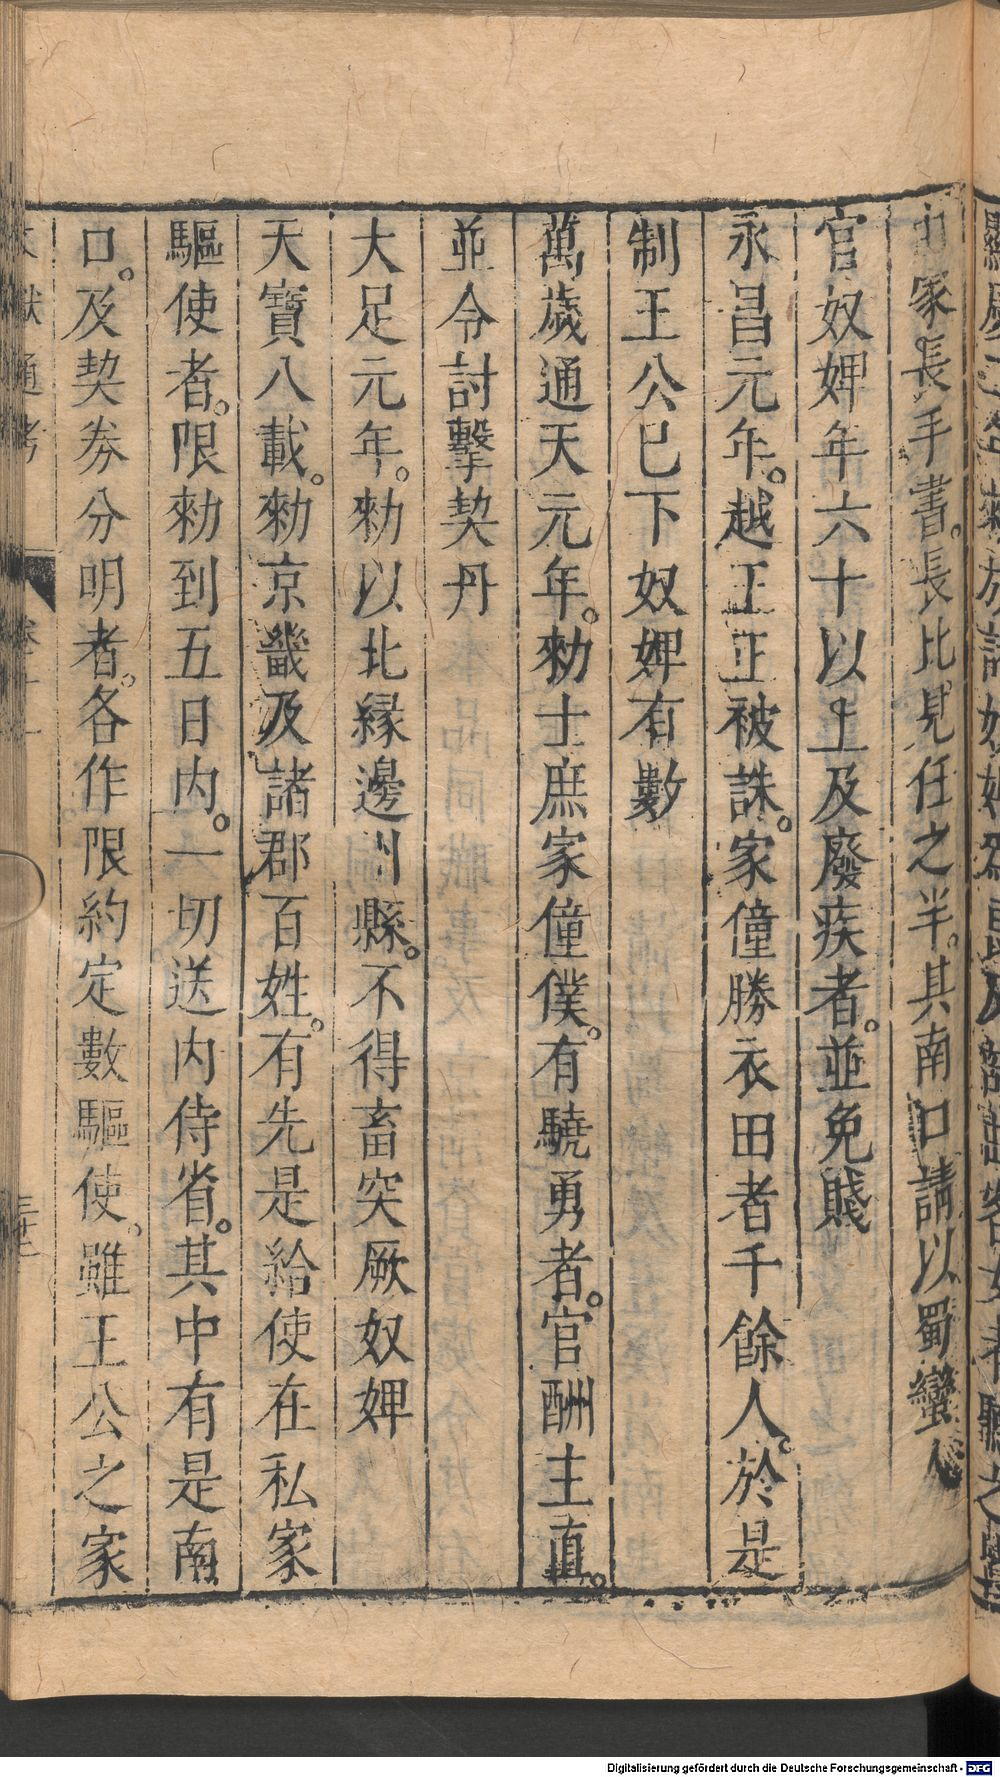 由家長手書。長比見任之半。其南口請以蜀蠻人
官奴婢年六十以上及廢疾者。並免賤
永昌元年。越王正被誅。家僮勝衣田者千餘人。於是
制王公已下奴婢有數
萬歲通天元年。勑士庶家僮僕。有驍勇者。官酬主直。
並令討擊契丹
大足元年。勑以北縁邊州縣。不得畜突厥奴婢
天寶八載。勑京畿及諸郡百姓。有先是給使在私家
驅使者。限勑到五日内。一切送内侍省。其中有是南
口。及契券分明者。各作限約定數驅使。雖王公之家
Digitalisierung gefördert durch die Deutsche Forschungsgemeinschaft - DFG